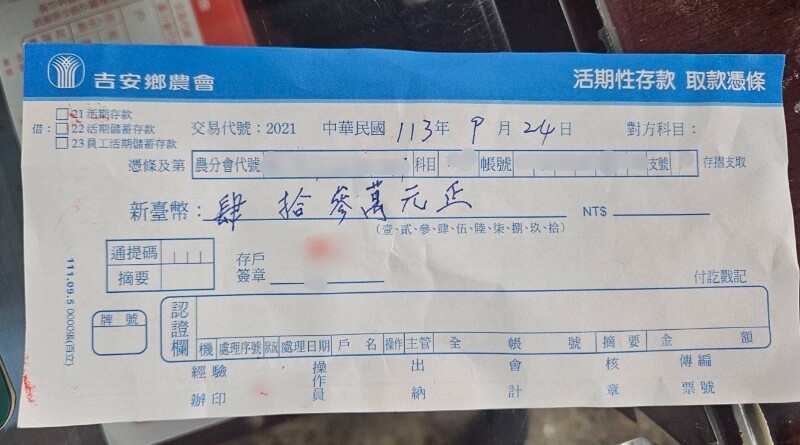 吉安鄉農會
活期性存款 取款憑條
借：
21活期存款
22活期儲蓄存款
23員工活期儲蓄存款
交易代號：2021 中華民國 113年 9月 24日 對方科目：
憑條及第 農分會代號 科目 帳號 支號 存摺支取
新臺幣：肆拾參萬元正 NT$
（壹、貳、參、肆、伍、陸、柒、捌、玖、拾）
通提碼
摘要
存戶
簽章
付訖戳記
牌號
認證欄
機 處理序號 處理日期 戶名 操作 主管 全 帳 號 摘要 金 額
經辦 驗印 操作員 出納 會計 核章 傳票 編號
111.09.5